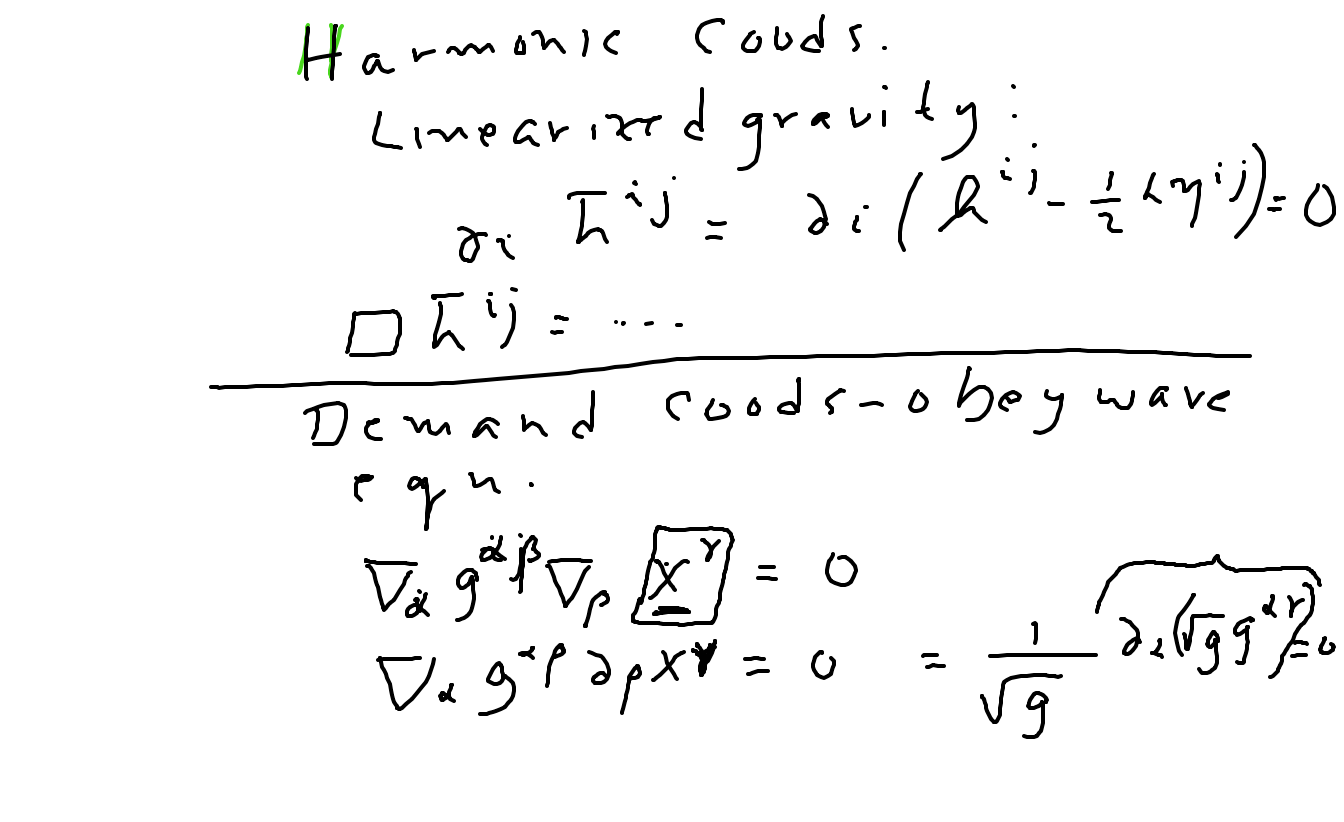 Harmonic Coods.
Linearized gravity:
∂i h̄^ij = ∂i (h^ij - 1/2 h η^ij) = 0
□ h̄^ij = ....
Demand coods - obey wave
eqn.
∇α g^αβ ∇β x^γ = 0
∇α g^αβ ∂β x^γ = 0 = 1/√g ∂α(√g g^αγ) = 0